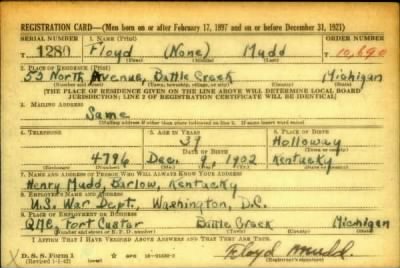 REGISTRATION CARD—(Men born on or after February 17, 1897 and on or before December 31, 1921)
SERIAL NUMBER 1. NAME (Print) ORDER NUMBER
T 1280 Floyd (None) Mudd T 10,690
(First) (Middle) (Last)
2. PLACE OF RESIDENCE (Print)
55 North Avenue, Battle Creek Michigan
(Number and street) (Town, township, village, or city) (County) (State)
[THE PLACE OF RESIDENCE GIVEN ON THE LINE ABOVE WILL DETERMINE LOCAL BOARD
JURISDICTION; LINE 2 OF REGISTRATION CERTIFICATE WILL BE IDENTICAL]
3. MAILING ADDRESS
Same
[Mailing address if other than place indicated on line 2. If same insert word same]
4. TELEPHONE 5. AGE IN YEARS 6. PLACE OF BIRTH
39 Holloway
DATE OF BIRTH (Town or county)
4796 Dec. 9, 1902 Kentucky
(Exchange) (Number) (Mo.) (Day) (Yr.) (State or country)
7. NAME AND ADDRESS OF PERSON WHO WILL ALWAYS KNOW YOUR ADDRESS
Henry Mudd, Barlow, Kentucky
8. EMPLOYER'S NAME AND ADDRESS
U.S. War Dept., Washington, D.C.
9. PLACE OF EMPLOYMENT OR BUSINESS
QMC, Fort Custer Battle Creek Michigan
(Number and street or R. F. D. number) (Town) (County) (State)
I AFFIRM THAT I HAVE VERIFIED ABOVE ANSWERS AND THAT THEY ARE TRUE.
D. S. S. Form 1
(Revised 1-1-42) GPO 16-21630-2
Floyd Mudd